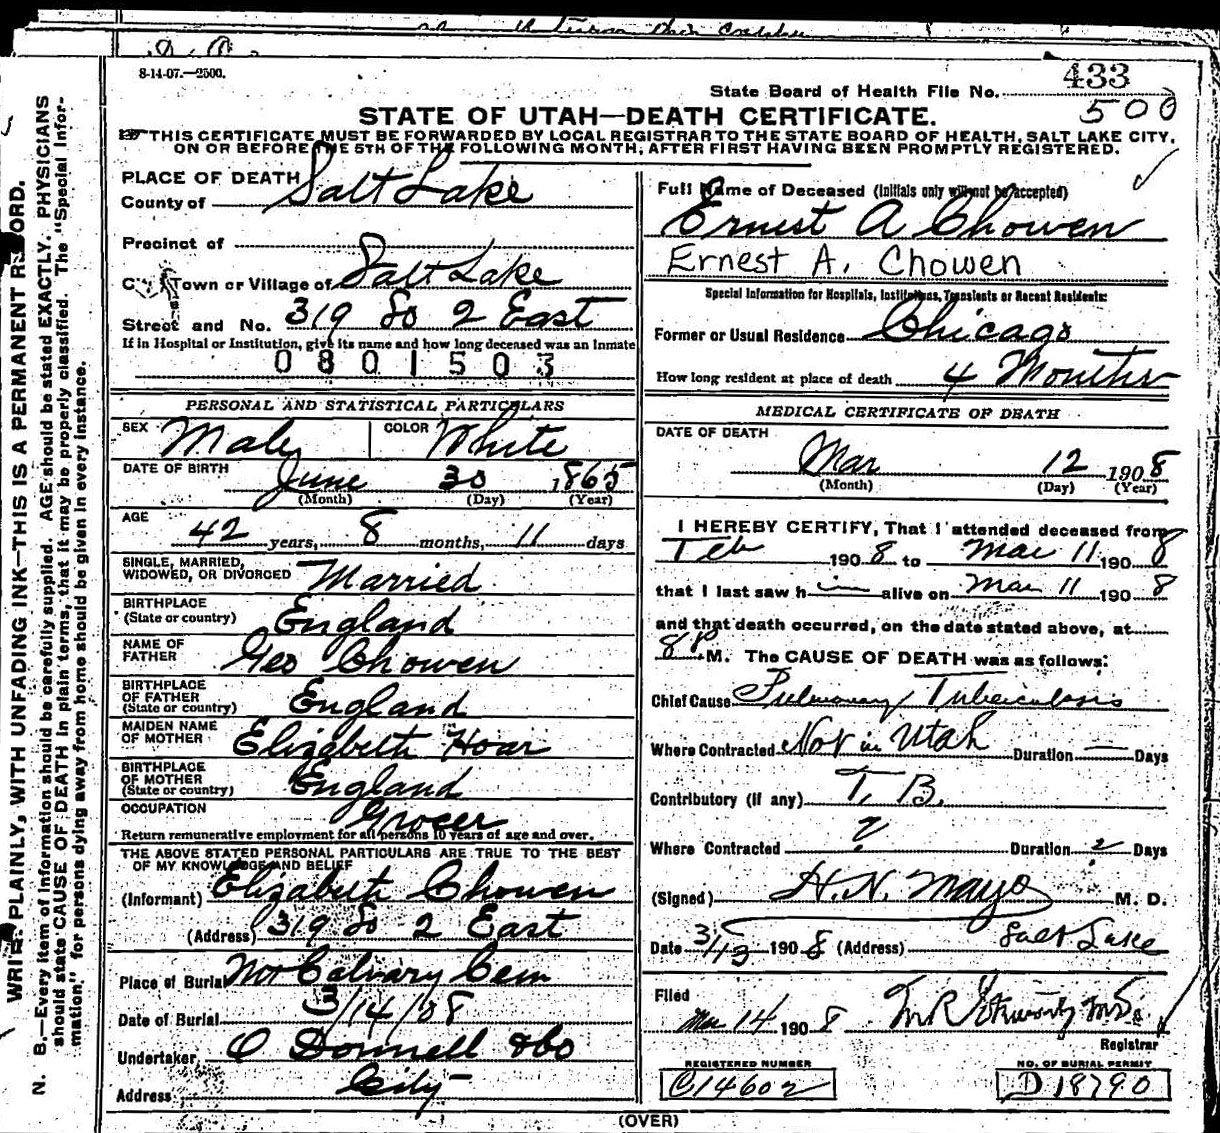 8-14-07.—2500.
State Board of Health File No. 433
500
STATE OF UTAH—DEATH CERTIFICATE.
THIS CERTIFICATE MUST BE FORWARDED BY LOCAL REGISTRAR TO THE STATE BOARD OF HEALTH, SALT LAKE CITY,
ON OR BEFORE THE 5TH OF THE FOLLOWING MONTH, AFTER FIRST HAVING BEEN PROMPTLY REGISTERED.
WRITE PLAINLY, WITH UNFADING INK—THIS IS A PERMANENT RECORD.
N. B.—Every item of information should be carefully supplied. AGE should be stated EXACTLY. PHYSICIANS
should state CAUSE OF DEATH in plain terms, that it may be properly classified. The "Special Infor-
mation" for persons dying away from home should be given in every instance.
PLACE OF DEATH
County of Salt Lake
Precinct of
City, Town or Village of Salt Lake
Street and No. 319 So 2 East
If in Hospital or Institution, give its name and how long deceased was an inmate
0801503
PERSONAL AND STATISTICAL PARTICULARS
SEX Male COLOR White
DATE OF BIRTH
June 30 1865
(Month) (Day) (Year)
AGE
42 years, 8 months, 11 days
SINGLE, MARRIED,
WIDOWED, OR DIVORCED Married
BIRTHPLACE
(State or country) England
NAME OF
FATHER Geo Chowen
BIRTHPLACE
OF FATHER
(State or country) England
MAIDEN NAME
OF MOTHER Elizabeth Hoar
BIRTHPLACE
OF MOTHER
(State or country) England
OCCUPATION Grocer
Return remunerative employment for all persons 10 years of age and over.
THE ABOVE STATED PERSONAL PARTICULARS ARE TRUE TO THE BEST
OF MY KNOWLEDGE AND BELIEF
(Informant) Elizabeth Chowen
(Address) 319 So 2 East
Place of Burial Mt Calvary Cem
Date of Burial 3/14/08
Undertaker O Donnell & Co
Address City
Full Name of Deceased (Initials only will not be accepted)
Ernest A Chowen
Ernest A. Chowen
Special Information for Hospitals, Institutions, Transients or Recent Residents:
Former or Usual Residence Chicago
How long resident at place of death 4 Months
MEDICAL CERTIFICATE OF DEATH
DATE OF DEATH
Mar 12 1908
(Month) (Day) (Year)
I HEREBY CERTIFY, That I attended deceased from
Feb 1908 to Mar 11 1908
that I last saw him alive on Mar 11 1908
and that death occurred, on the date stated above, at
8 P M. The CAUSE OF DEATH was as follows:
Chief Cause Pulmonary Tuberculosis
Where Contracted Not in Utah Duration — Days
Contributory (if any) T. B.
Where Contracted ? Duration ? Days
(Signed) H. N. Mayo M. D.
Date 3/13 1908 (Address) Salt Lake
Filed
Mar 14 1908
Registrar
REGISTERED NUMBER
C14602
NO. OF BURIAL PERMIT
D 18790
(OVER)